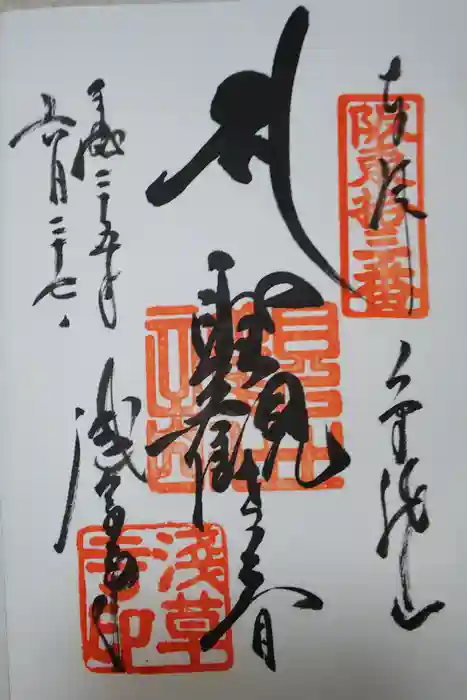 奉拝
阪東拾三番
金龍山
聖観世音
浅草寺
淺草寺印
平成二十五年
六月二十七日